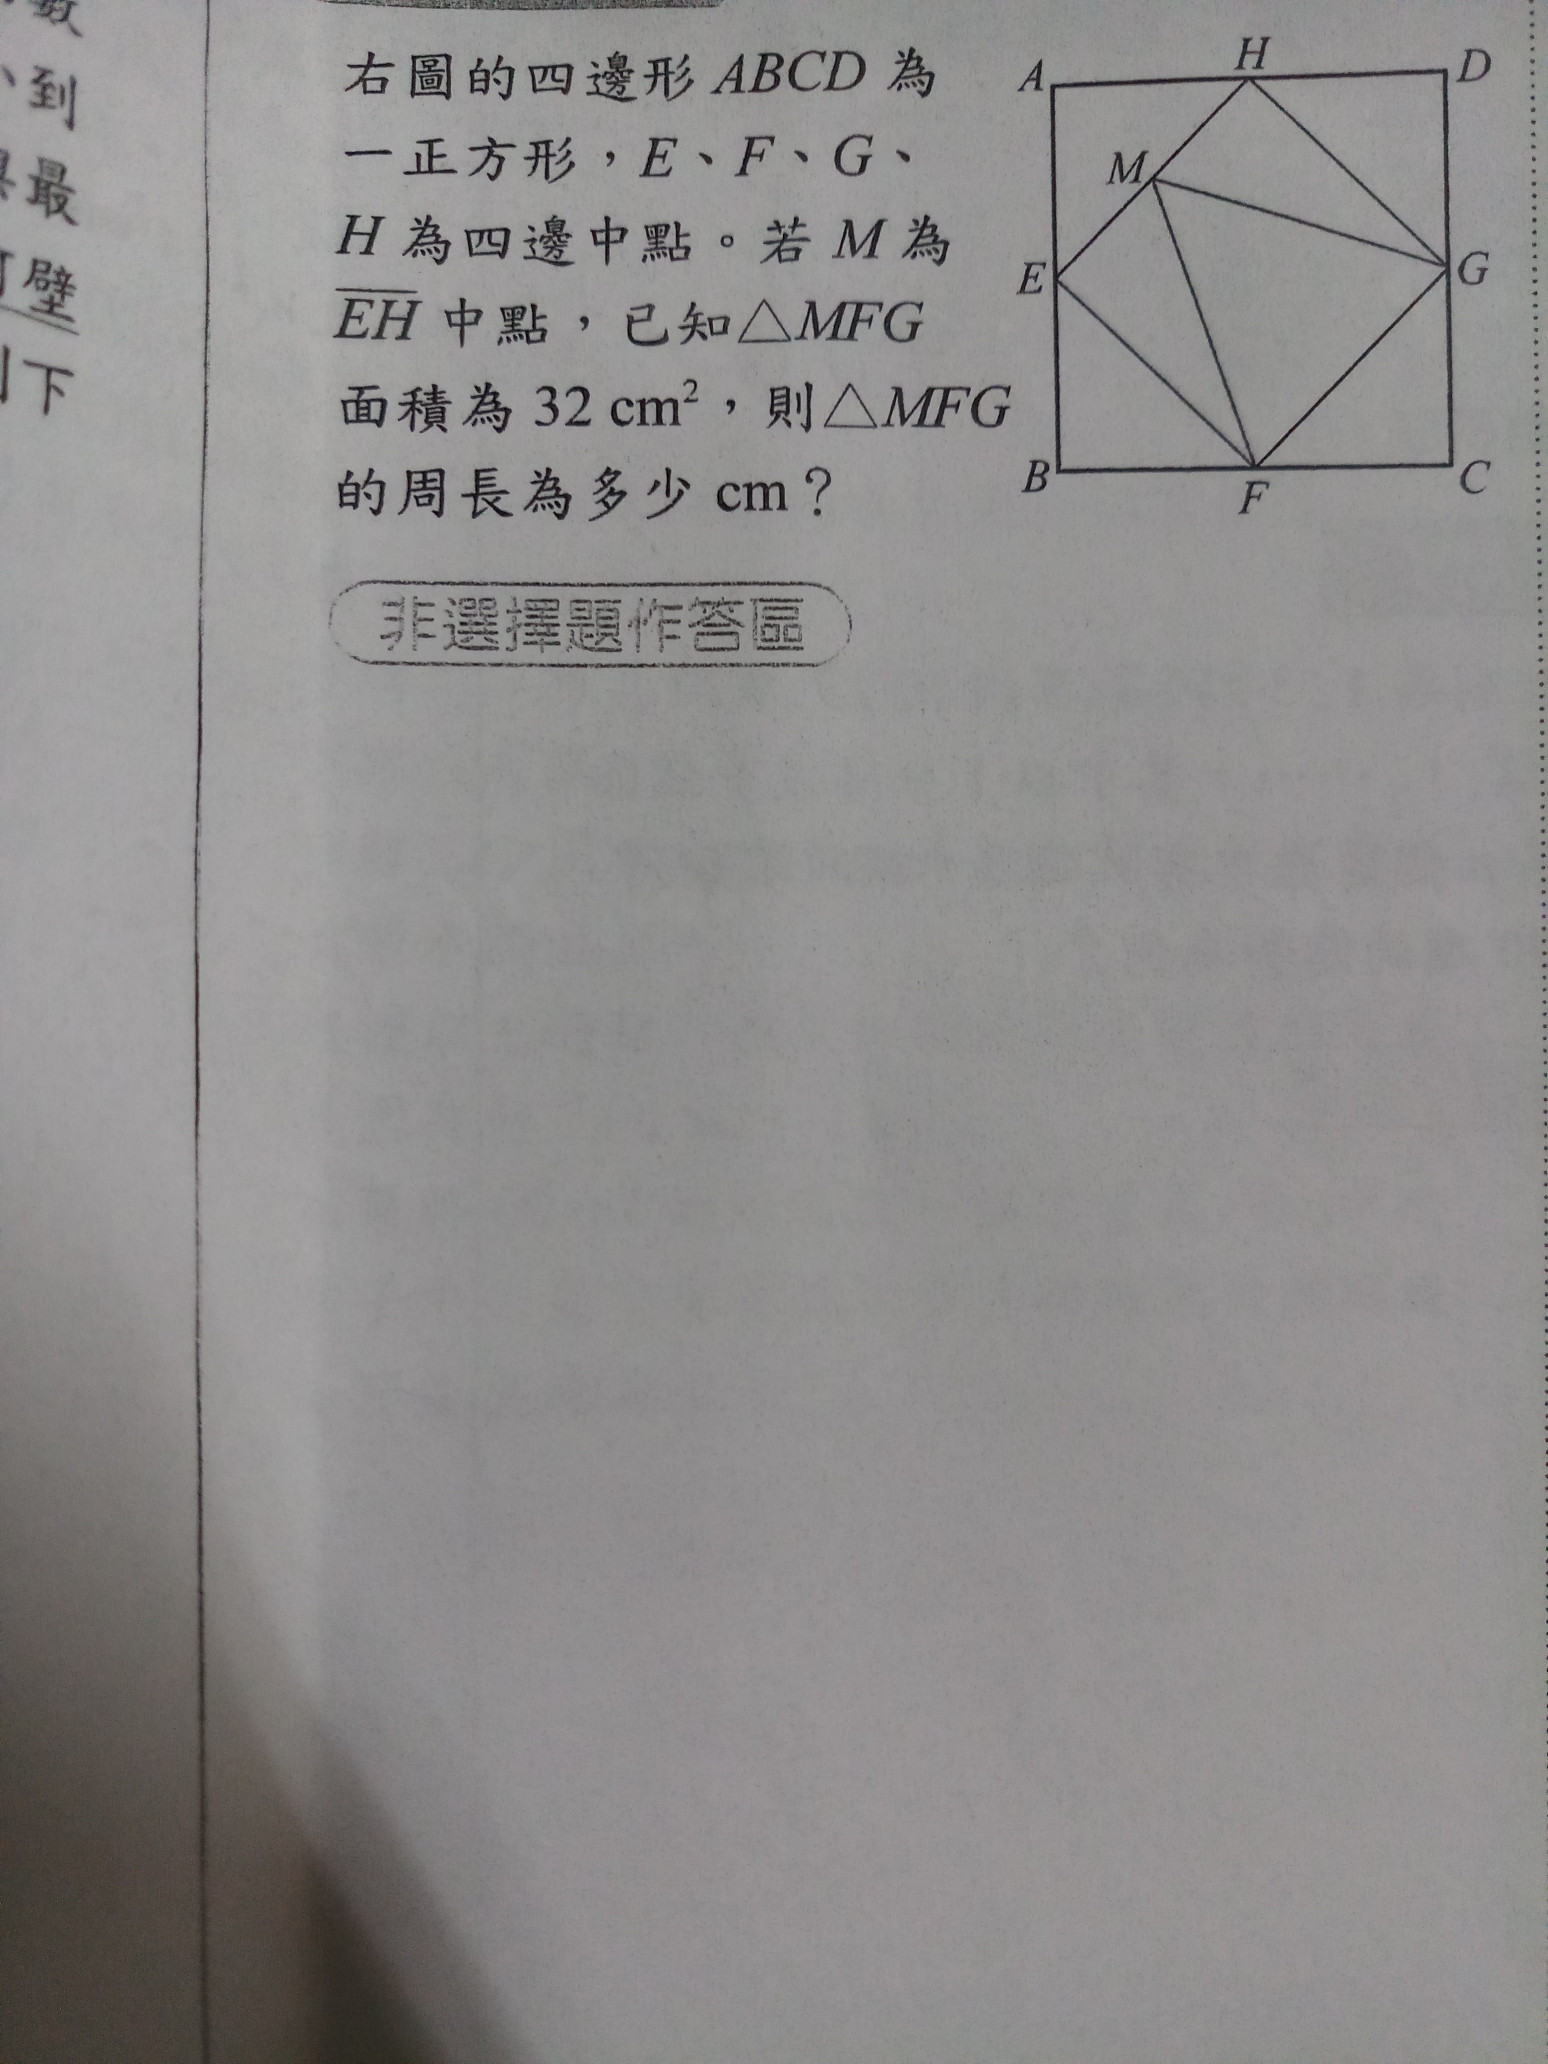 數
、到
最
壁
下
右圖的四邊形 ABCD 為
一正方形，E、F、G、
H 為四邊中點。若 M 為
EH 中點，已知△MFG
面積為 32 cm²，則△MFG
的周長為多少 cm？
A
H
D
M
E
G
B
F
C
非選擇題作答區